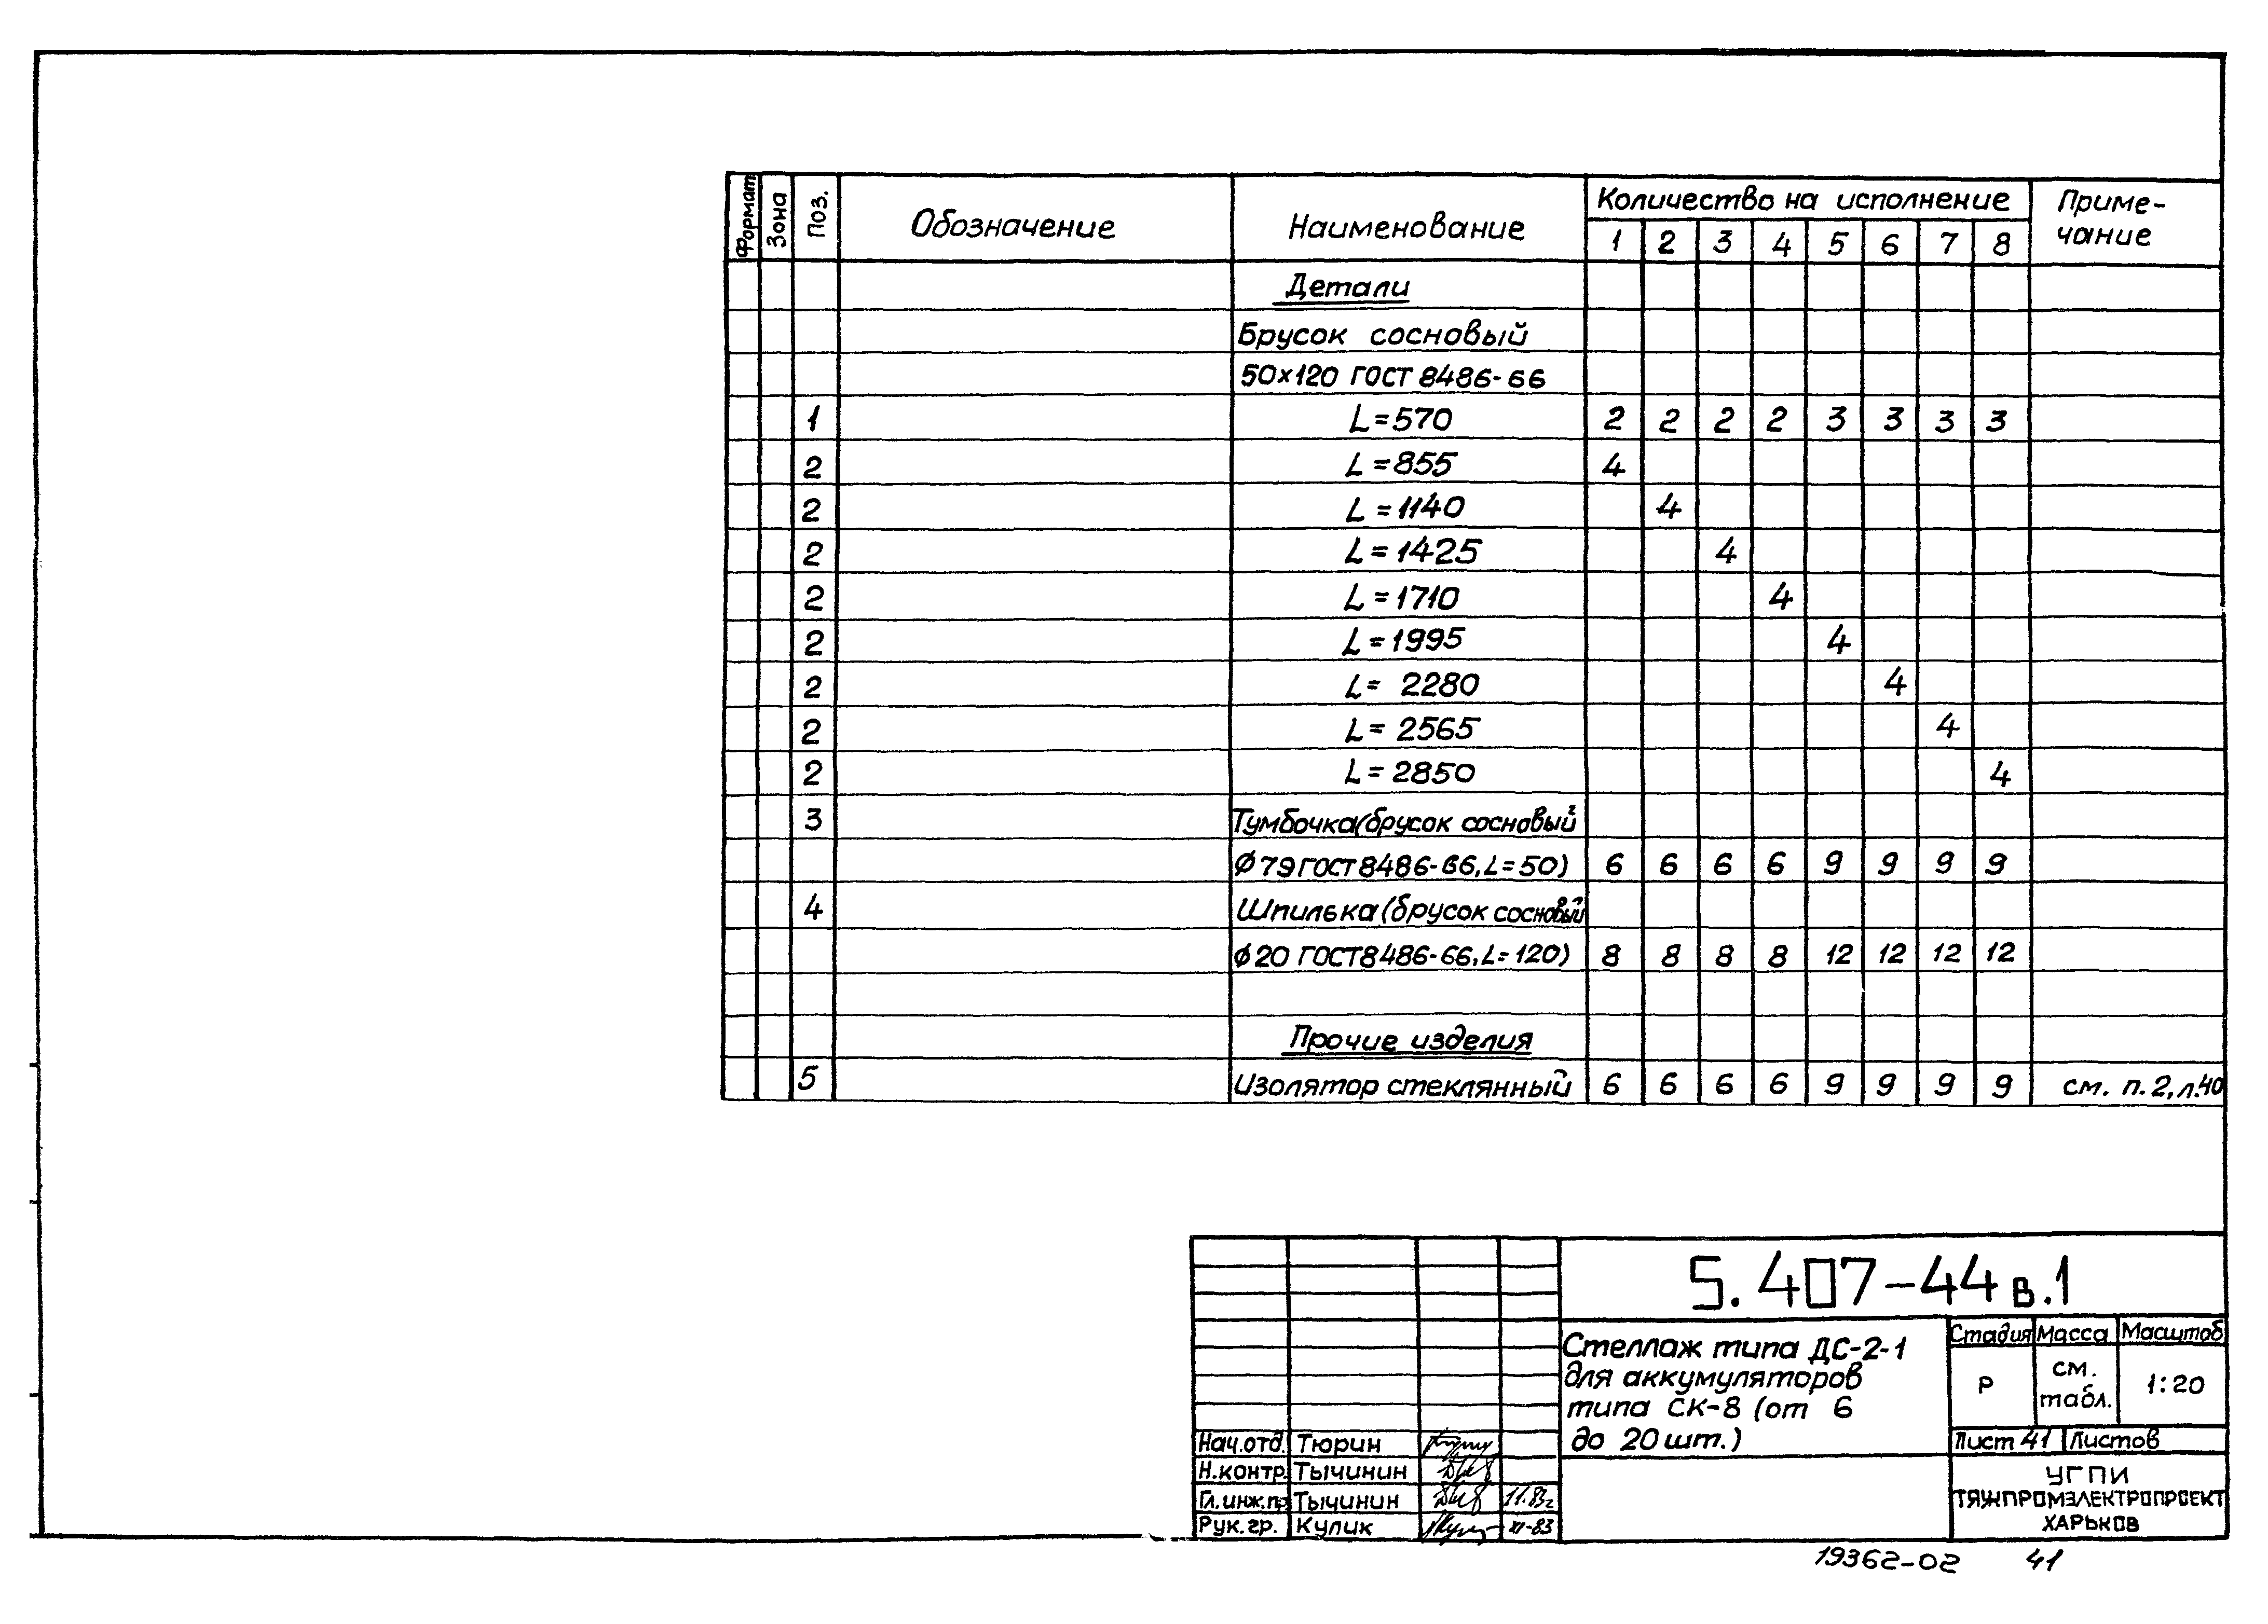 Формат Зона Поз. Обозначение Наименование Количество на исполнение Приме-
чание
1 2 3 4 5 6 7 8
Детали
Брусок сосновый
50×120 ГОСТ 8486-66
1 L=570 2 2 2 2 3 3 3 3
2 L=855 4
2 L=1140 4
2 L=1425 4
2 L=1710 4
2 L=1995 4
2 L= 2280 4
2 L= 2565 4
2 L= 2850 4
3 Тумбочка(брусок сосновый
Ф79 ГОСТ 8486-66, L=50) 6 6 6 6 9 9 9 9
4 Шпилька (брусок сосновый
Ф20 ГОСТ 8486-66, L=120) 8 8 8 8 12 12 12 12
Прочие изделия
5 Изолятор стеклянный 6 6 6 6 9 9 9 9 см. п. 2, л.40
5.407-44 в.1
Стеллаж типа ДС-2-1
для аккумуляторов
типа СК-8 (от 6
до 20 шт.)
Стадия Масса Масштаб
Р см.
табл. 1:20
Лист 41 Листов
УГПИ
ТЯЖПРОМЭЛЕКТРОПРОЕКТ
ХАРЬКОВ
Нач.отд. Тюрин
Н.контр. Тычинин
Гл.инж.пр Тычинин 11.83г
Рук.гр. Кулик XI-83
19362-02 41